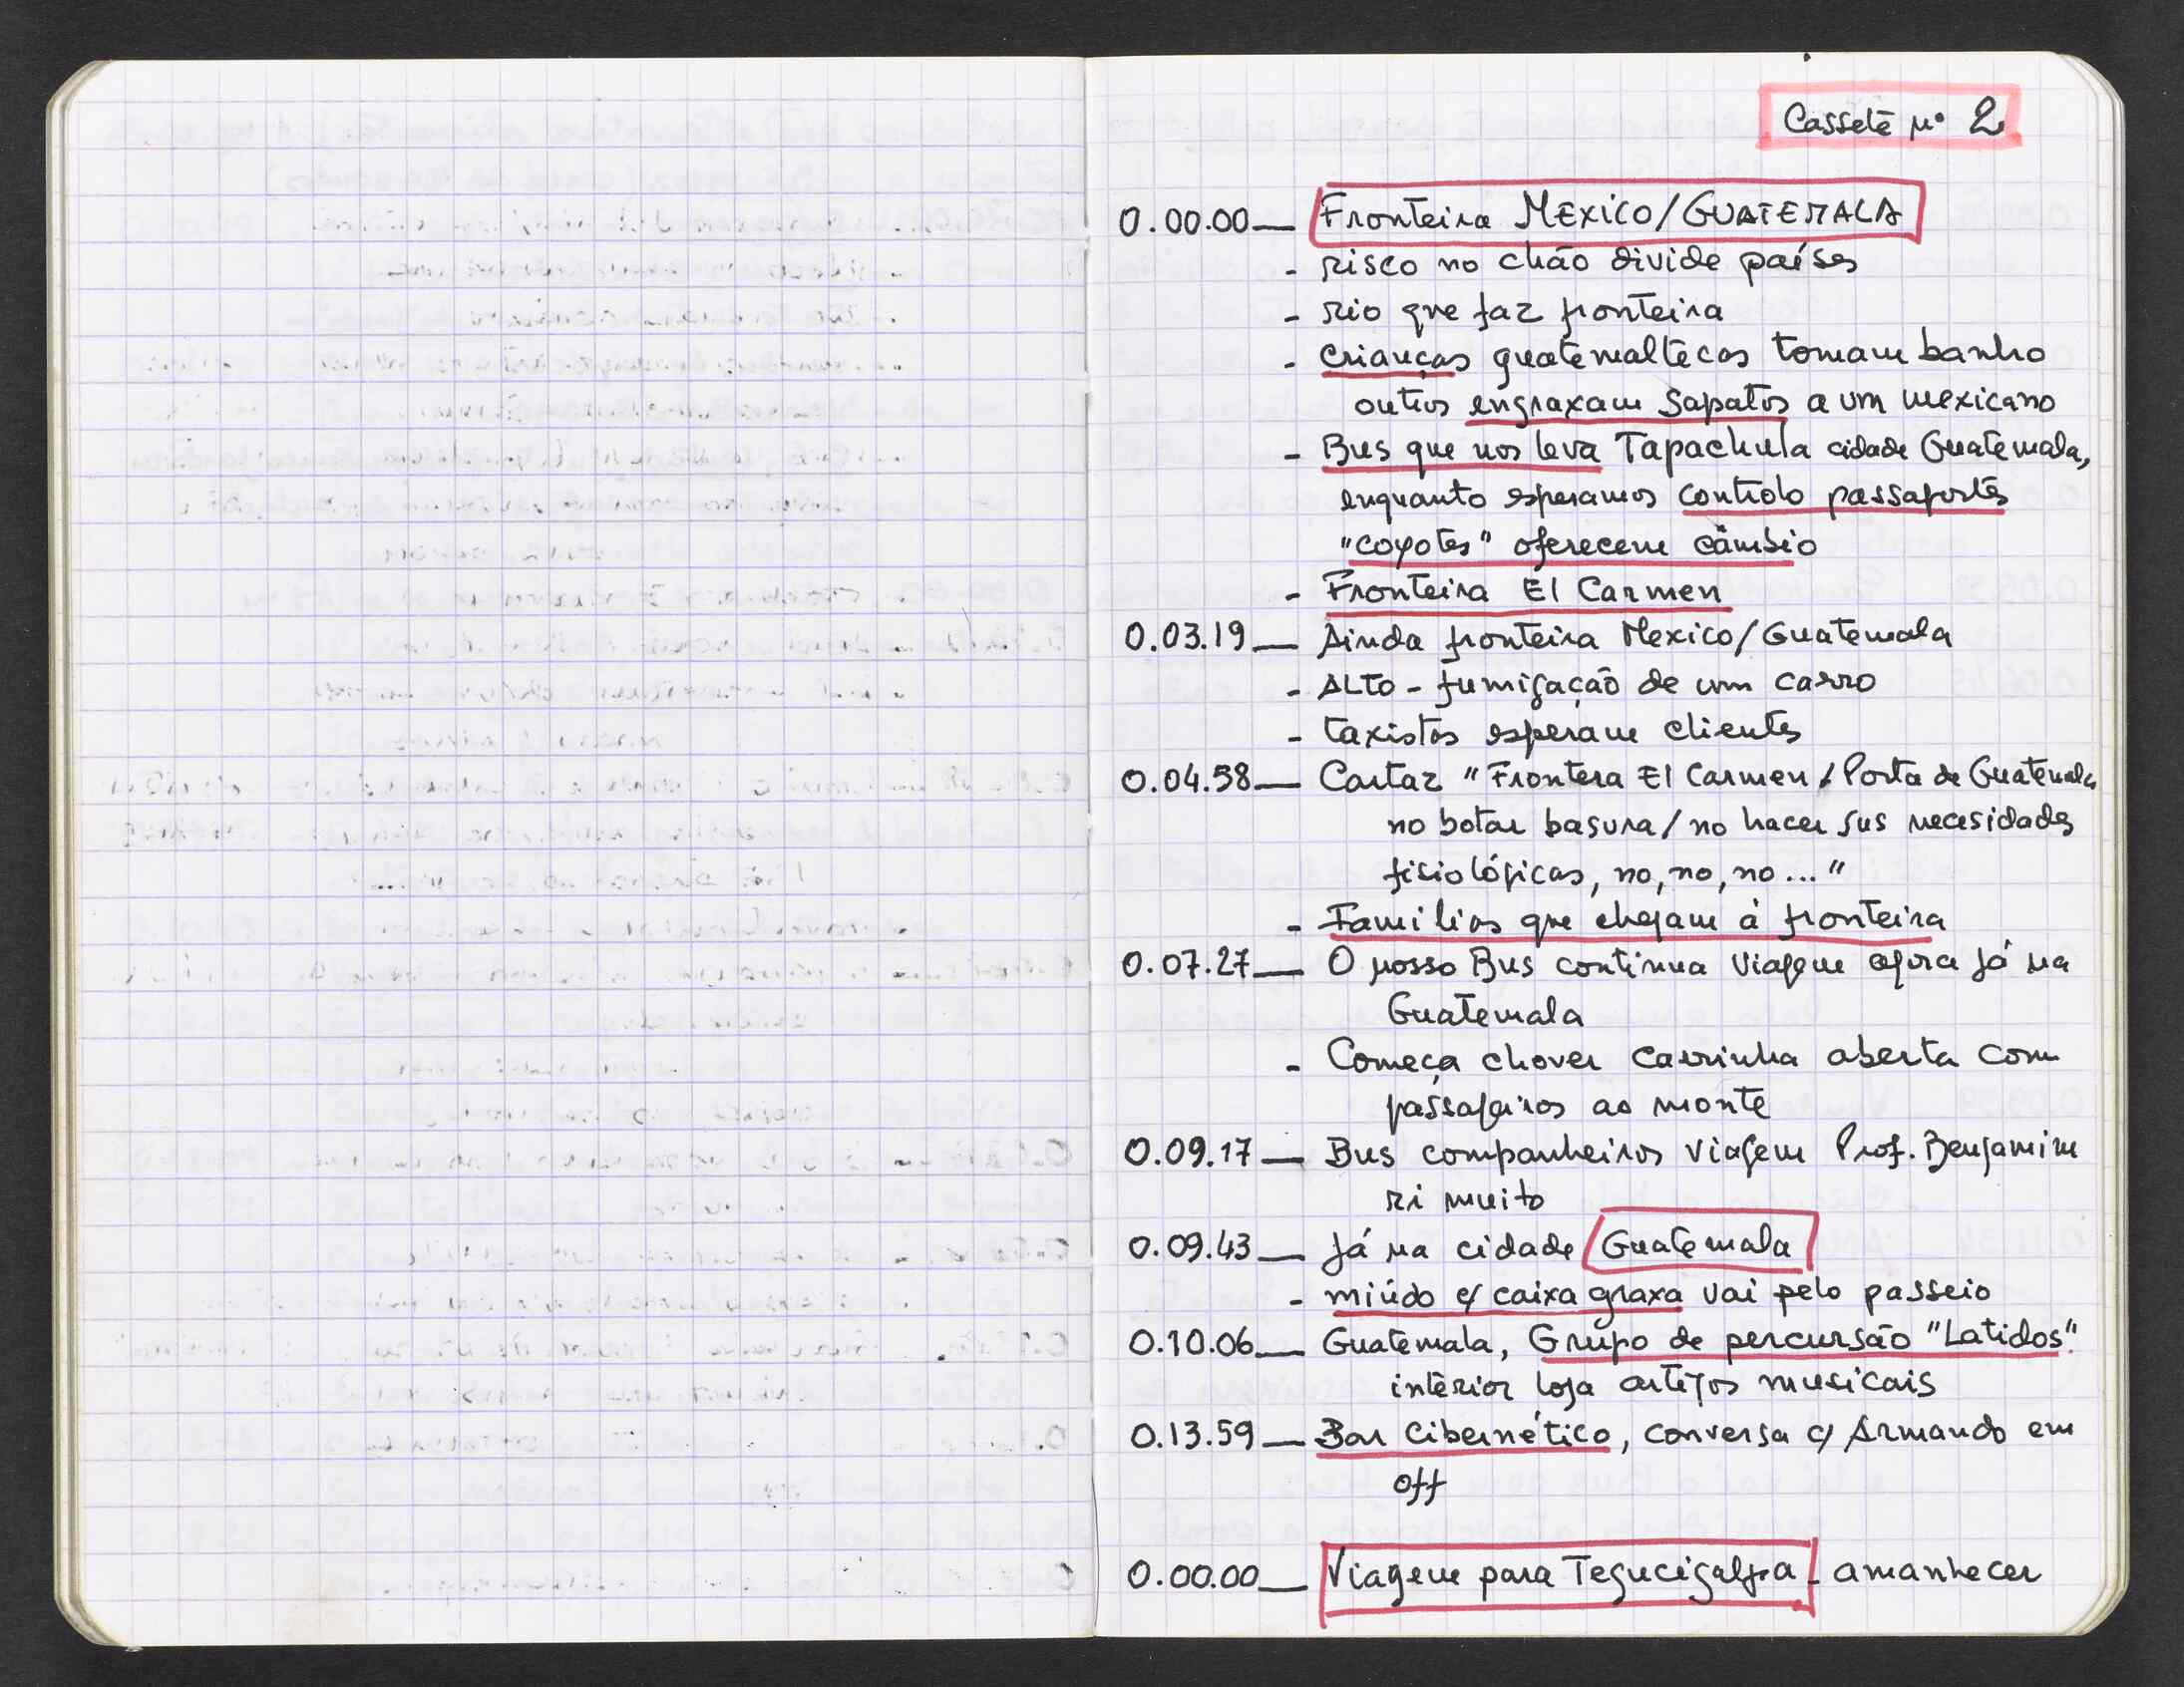 Cassete nº 2
0.00.00— Fronteira MEXICO/GUATEMALA
- risco no chão divide países
- rio que faz fronteira
- crianças guatemaltecas tomam banho
outros engraxam sapatos a um mexicano
- Bus que nos leva Tapachula cidade Guatemala,
enquanto esperamos controlo passaportes
"coyotes" oferecem câmbio
- Fronteira El Carmen
0.03.19— Ainda fronteira Mexico/Guatemala
- ALTO - fumigação de um carro
- taxistas esperam clientes
0.04.58— Cartaz "Frontera El Carmen / Porta de Guatemala
no botar basura/ no hacer sus necesidades
fisiológicas, no, no, no..."
- Familias que chegam à fronteira
0.07.27— O nosso Bus continua viagem agora já na
Guatemala
- Começa chover carrinha aberta com
passageiros ao monte
0.09.17— Bus companheiros viagem Prof. Benjamim
ri muito
0.09.43— Já na cidade Guatemala
- miúdo c/ caixa graxa vai pelo passeio
0.10.06— Guatemala, Grupo de percursão "Latidos".
interior loja artigos musicais
0.13.59— Bar Cibernético, conversa c/ Armando em
off
0.00.00— Viagem para Tegucigalpa - amanhecer